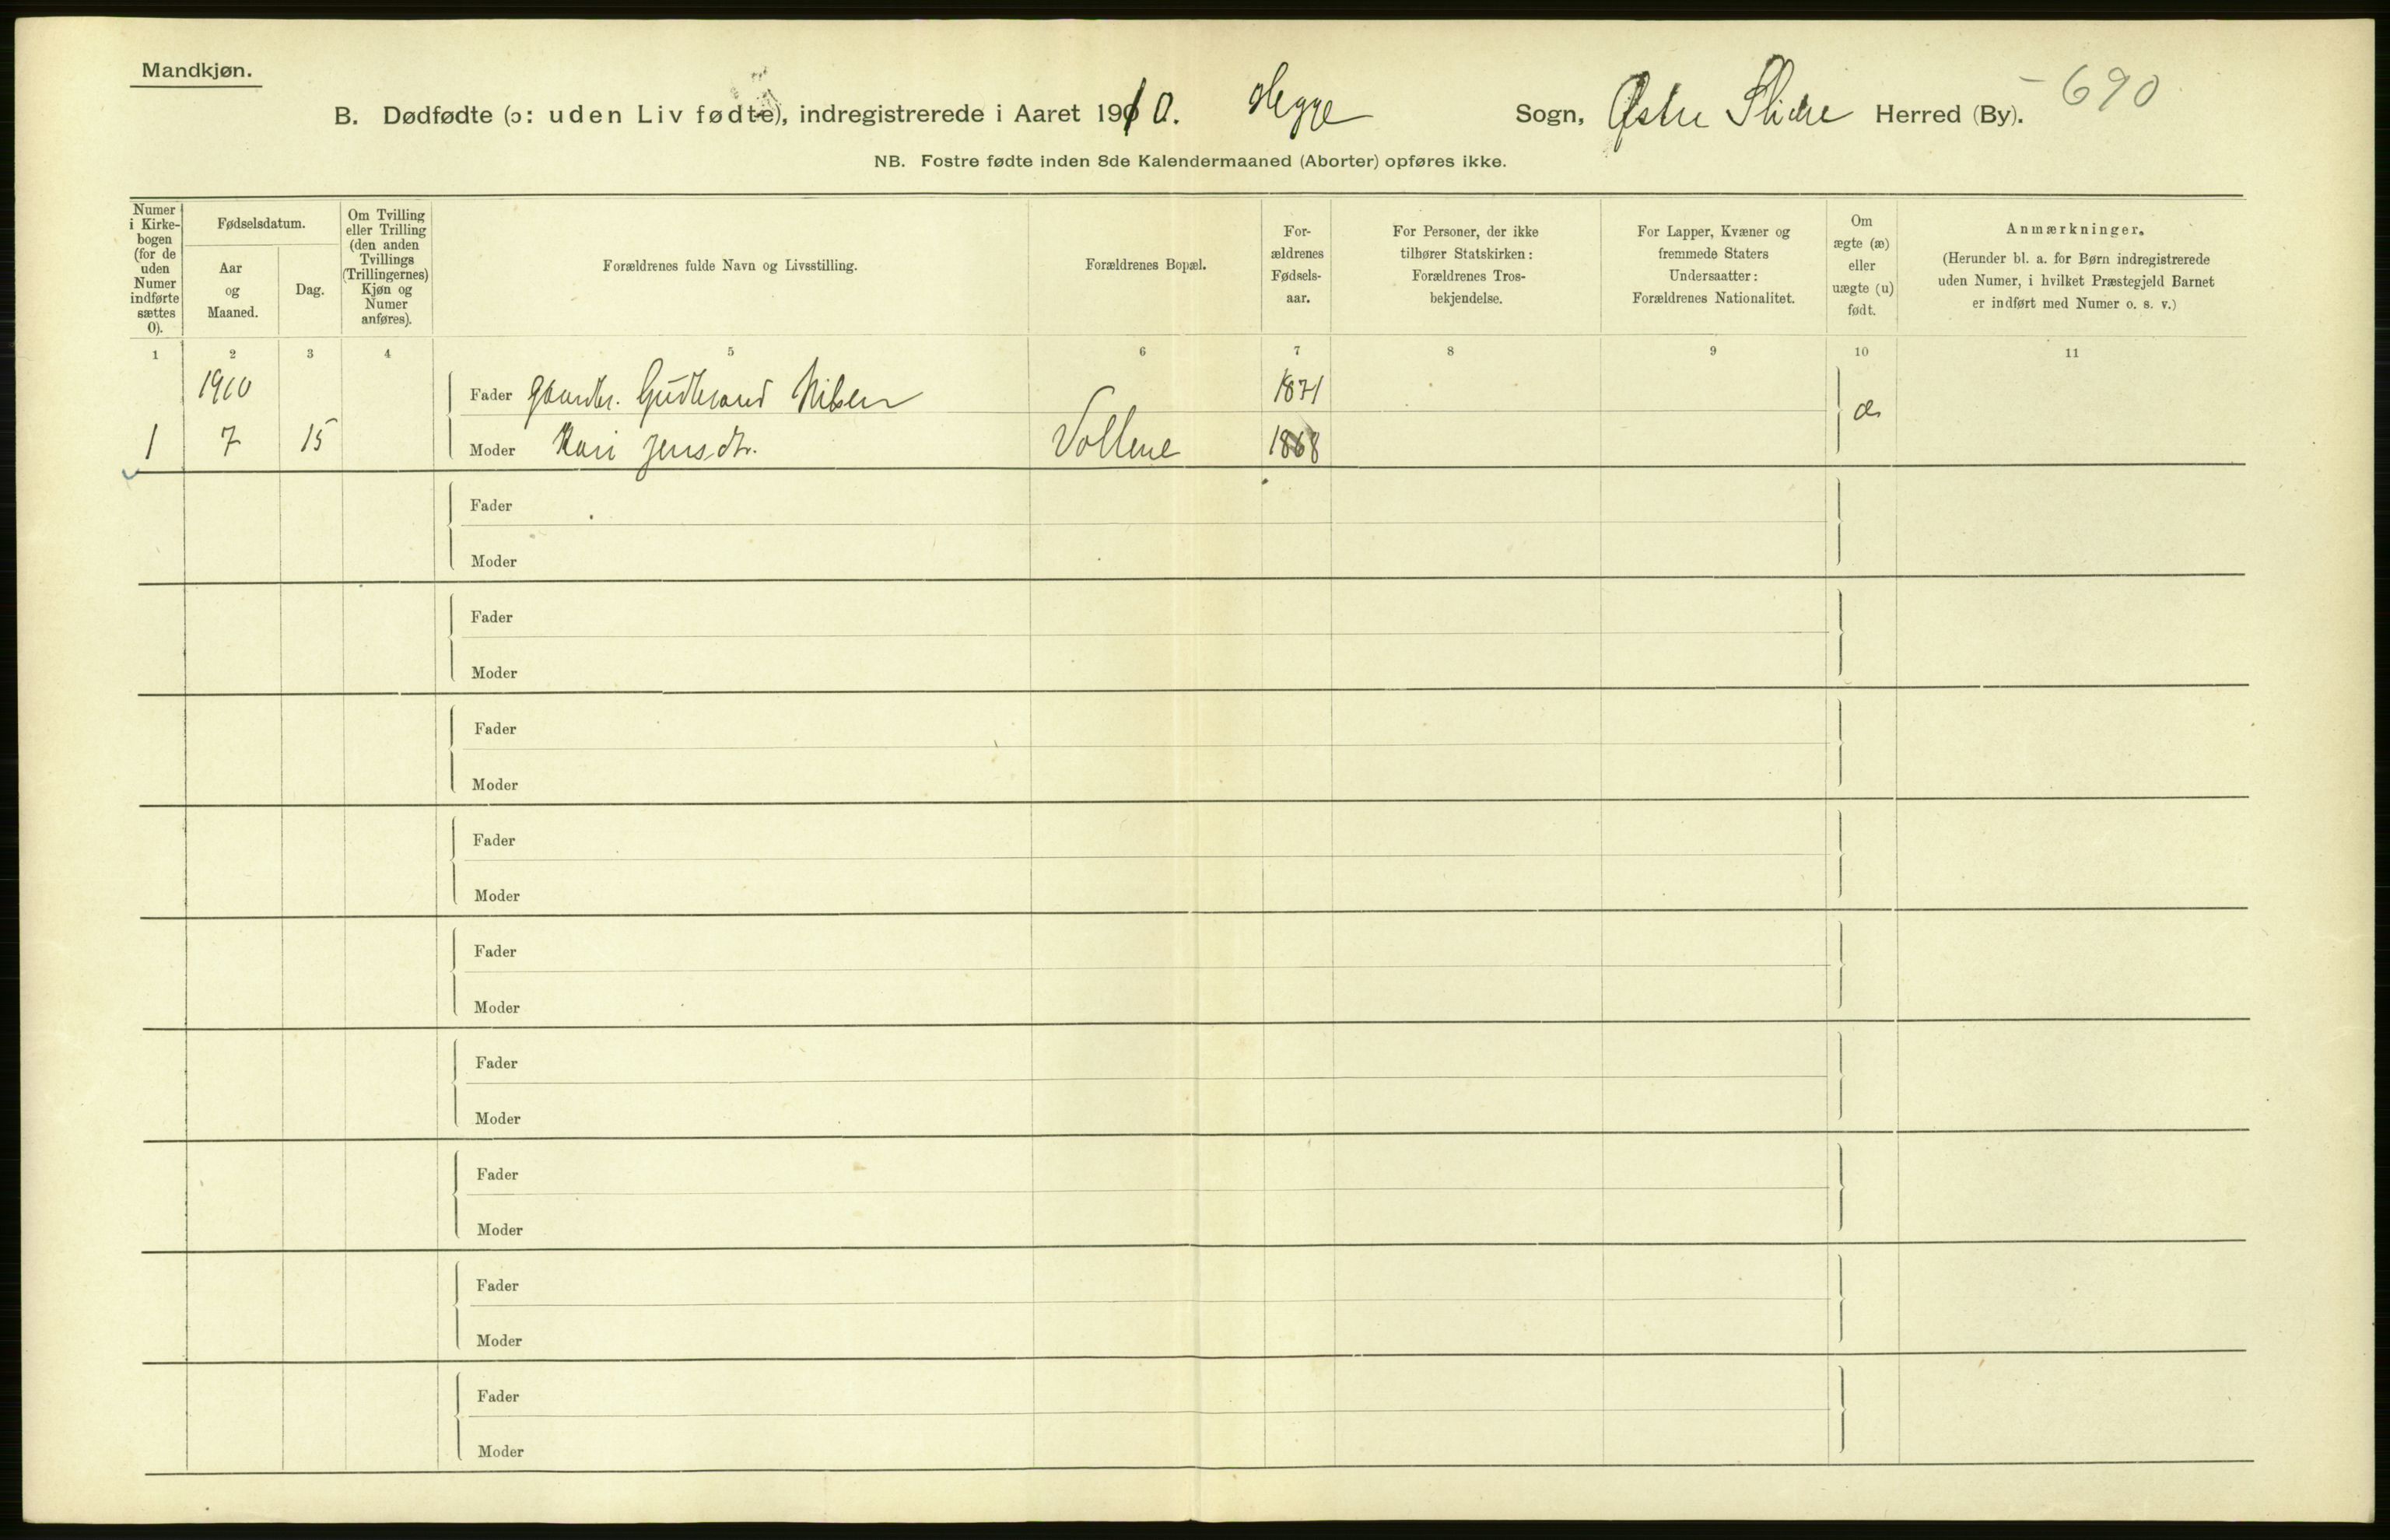 Mandkjøn.
B. Dødfødte (ɔ: uden Liv fødte), indregistrerede i Aaret 1910. Hegge Sogn, Østre Slidre Herred (By). - 690
NB. Fostre fødte inden 8de Kalendermaaned (Aborter) opføres ikke.
Numer i Kirkebogen (for de uden Numer indførte sættes 0).
Fødselsdatum.
Aar og Maaned.
Dag.
Om Tvilling eller Trilling (den anden Tvillings (Trillingernes) Kjøn og Numer anføres).
Forældrenes fulde Navn og Livsstilling.
Forældrenes Bopæl.
Forældrenes Fødselsaar.
For Personer, der ikke tilhører Statskirken: Forældrenes Trosbekjendelse.
For Lapper, Kvæner og fremmede Staters Undersaatter: Forældrenes Nationalitet.
Om ægte (æ) eller uægte (u) født.
Anmærkninger.
(Herunder bl. a. for Børn indregistrerede uden Numer, i hvilket Præstegjeld Barnet er indført med Numer o. s. v.)
1 2 3 4 5 6 7 8 9 10 11
1910 Fader Gbrudbr. Gudbrand Nilsen 1871 æ
1 7 15 Moder Kari Jensdtr. Vollene 1868
Fader
Moder
Fader
Moder
Fader
Moder
Fader
Moder
Fader
Moder
Fader
Moder
Fader
Moder
Fader
Moder
Fader
Moder